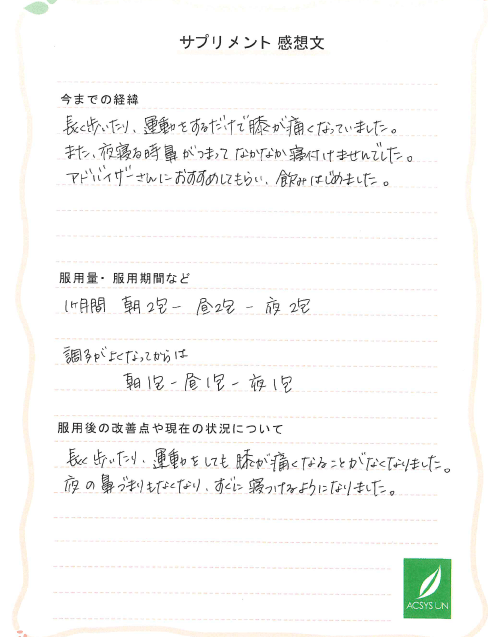 サプリメント 感想文
今までの経緯
長く歩いたり、運動をするだけで膝が痛くなっていました。
また、夜寝る時鼻がつまって なかなか寝付けませんでした。
アドバイザーさんにおすすめしてもらい、飲みはじめました。
服用量・服用期間など
1ヶ月間 朝2包 - 昼2包 - 夜 2包
調子がよくなってからは
朝1包 - 昼1包 - 夜1包
服用後の改善点や現在の状況について
長く歩いたり、運動をしても 膝が痛くなることがなくなりました。
夜の鼻づまりもなくなり、すぐに寝つけるようになりました。
ACSYS UN